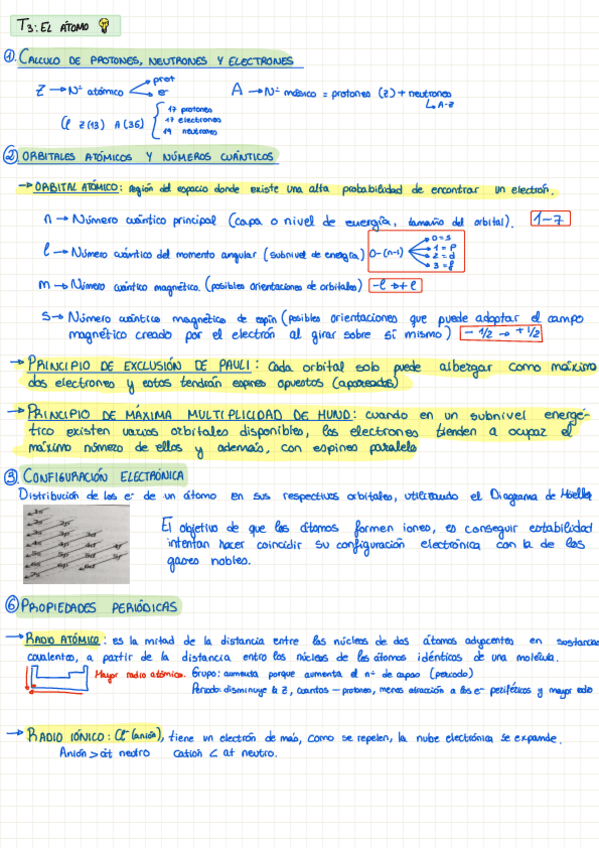 T3: EL ÁTOMO
①. CALCULO DE PROTONES, NEUTRONES Y ELECTRONES
Z → Nº atómico prot e⁻ A → Nº másico = protones (Z) + neutrones
↳ A-Z
Cl Z(13) A(36) 17 protones
17 electrones
19 neutrones
② ORBITALES ATÓMICOS Y NÚMEROS CUÁNTICOS
→ ORBITAL ATÓMICO: región del espacio donde existe una alta probabilidad de encontrar un electrón.
n → Número cuántico principal (capa o nivel de energía, tamaño del orbital). 1-7
l → Número cuántico del momento angular (subnivel de energía) 0-(n-1) 0=s
1=p
2=d
3=f
m → Número cuántico magnético (posibles orientaciones de orbitales) -l → +l
s → Número cuántico magnético de espín (posibles orientaciones que puede adoptar el campo
magnético creado por el electrón al girar sobre sí mismo) -1/2 → +1/2
→ PRINCIPIO DE EXCLUSIÓN DE PAULI: Cada orbital solo puede albergar como máximo
dos electrones y estos tendrán espines opuestos (apareados)
→ PRINCIPIO DE MÁXIMA MULTIPLICIDAD DE HUND: cuando en un subnivel energé-
tico existen varios orbitales disponibles, los electrones tienden a ocupar el
máximo número de ellos y además, con espines paralelo
③. CONFIGURACIÓN ELECTRÓNICA
Distribución de los e⁻ de un átomo en sus respectivos orbitales, utilizando el Diagrama de Moeller
El objetivo de que los átomos formen iones, es conseguir estabilidad
intentan hacer coincidir su configuración electrónica con la de los
gases nobles.
⑥ PROPIEDADES PERIÓDICAS
→ RADIO ATÓMICO: es la mitad de la distancia entre los núcleos de dos átomos adyacentes en sustancias
covalentes, a partir de la distancia entre los núcleos de los átomos idénticos de una molécula.
Mayor radio atómico. Grupo: aumenta porque aumenta el nº de capas (periodo)
Periodo: disminuye la Z, cuantos - protones, menos atracción a los e⁻ periféricos y mayor radio
→ RADIO IÓNICO: Cl⁻ (anión), tiene un electrón de más, como se repelen, la nube electrónica se expande.
Anión > át neutro Catión < at neutro.